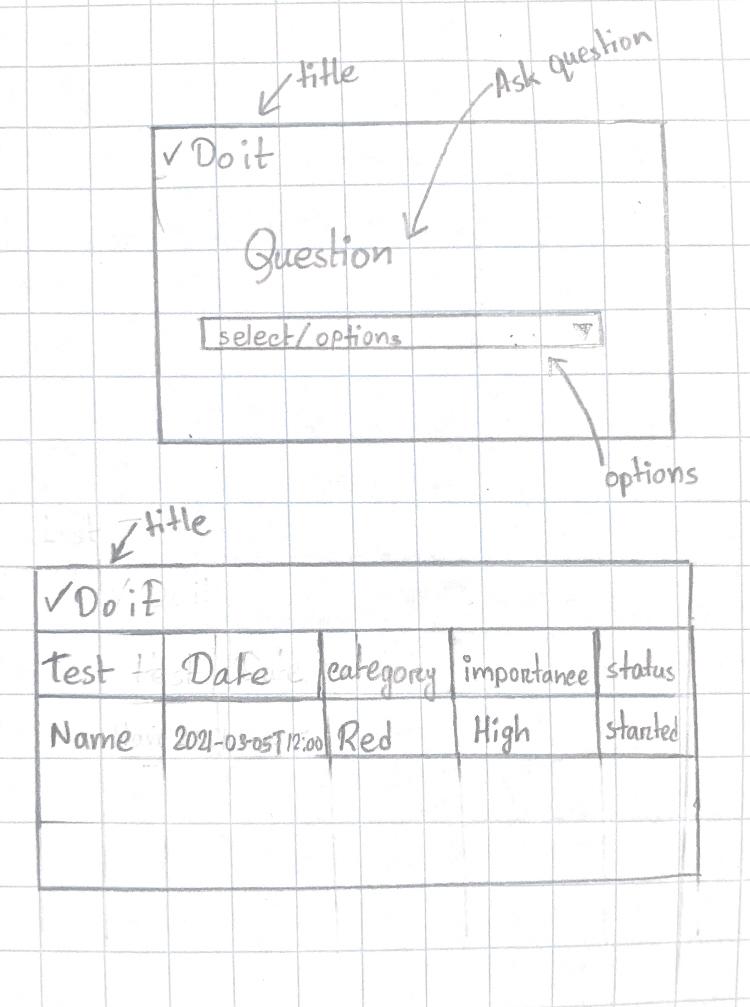 title
Ask question
✓ Do it
Question
select/options
options
title
✓ Do it
Test Date category importance status
Name 2021-03-05T12:00 Red High started